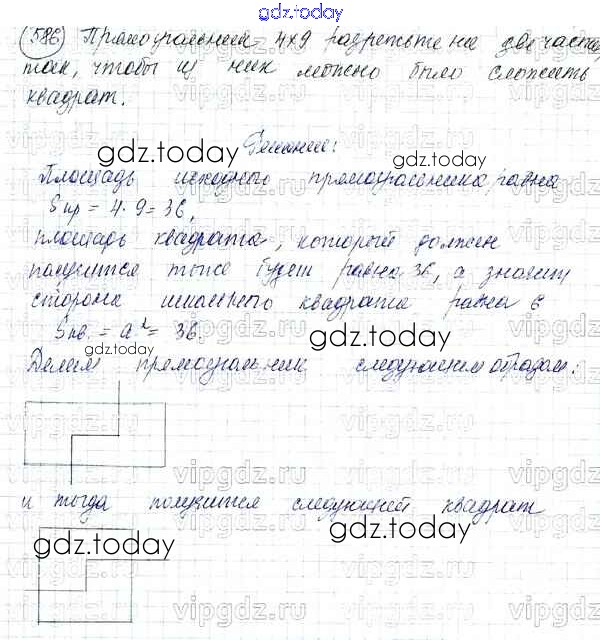 gdz.today
586 Прямоугольник 4×9 разрежьте на две части,
так, чтобы из них можно было сложить
квадрат.
Решение:
gdz.today gdz.today
Площадь исходного прямоугольника равна
Sпр = 4 · 9 = 36,
площадь квадрата, который должен
получится тоже будет равна 36, а значит
сторона искомого квадрата равна 6
Sкв. = a² = 36.
gdz.today gdz.today
Делим прямоугольник следующим образом:
vipgdz.ru vipgdz.ru
и тогда получится следующий квадрат
gdz.today gdz.today
vipgdz.ru vipgdz.ru